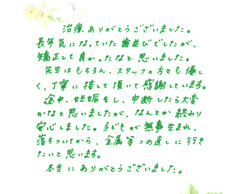 治療ありがとうございました。
長年気になっていた歯並びでしたが、
矯正して良かったなと思いました。
先生はもちろん、スタッフの方々も優し
く、丁寧に接して頂いて感謝しています。
途中、妊娠をし、中断したら大変
かなと思いましたが、なんとか終わり
安心しました。子どもが無事生まれ、
落ちついてから、金属等つめ直しに行き
たいと思います。
本当にありがとうございました。